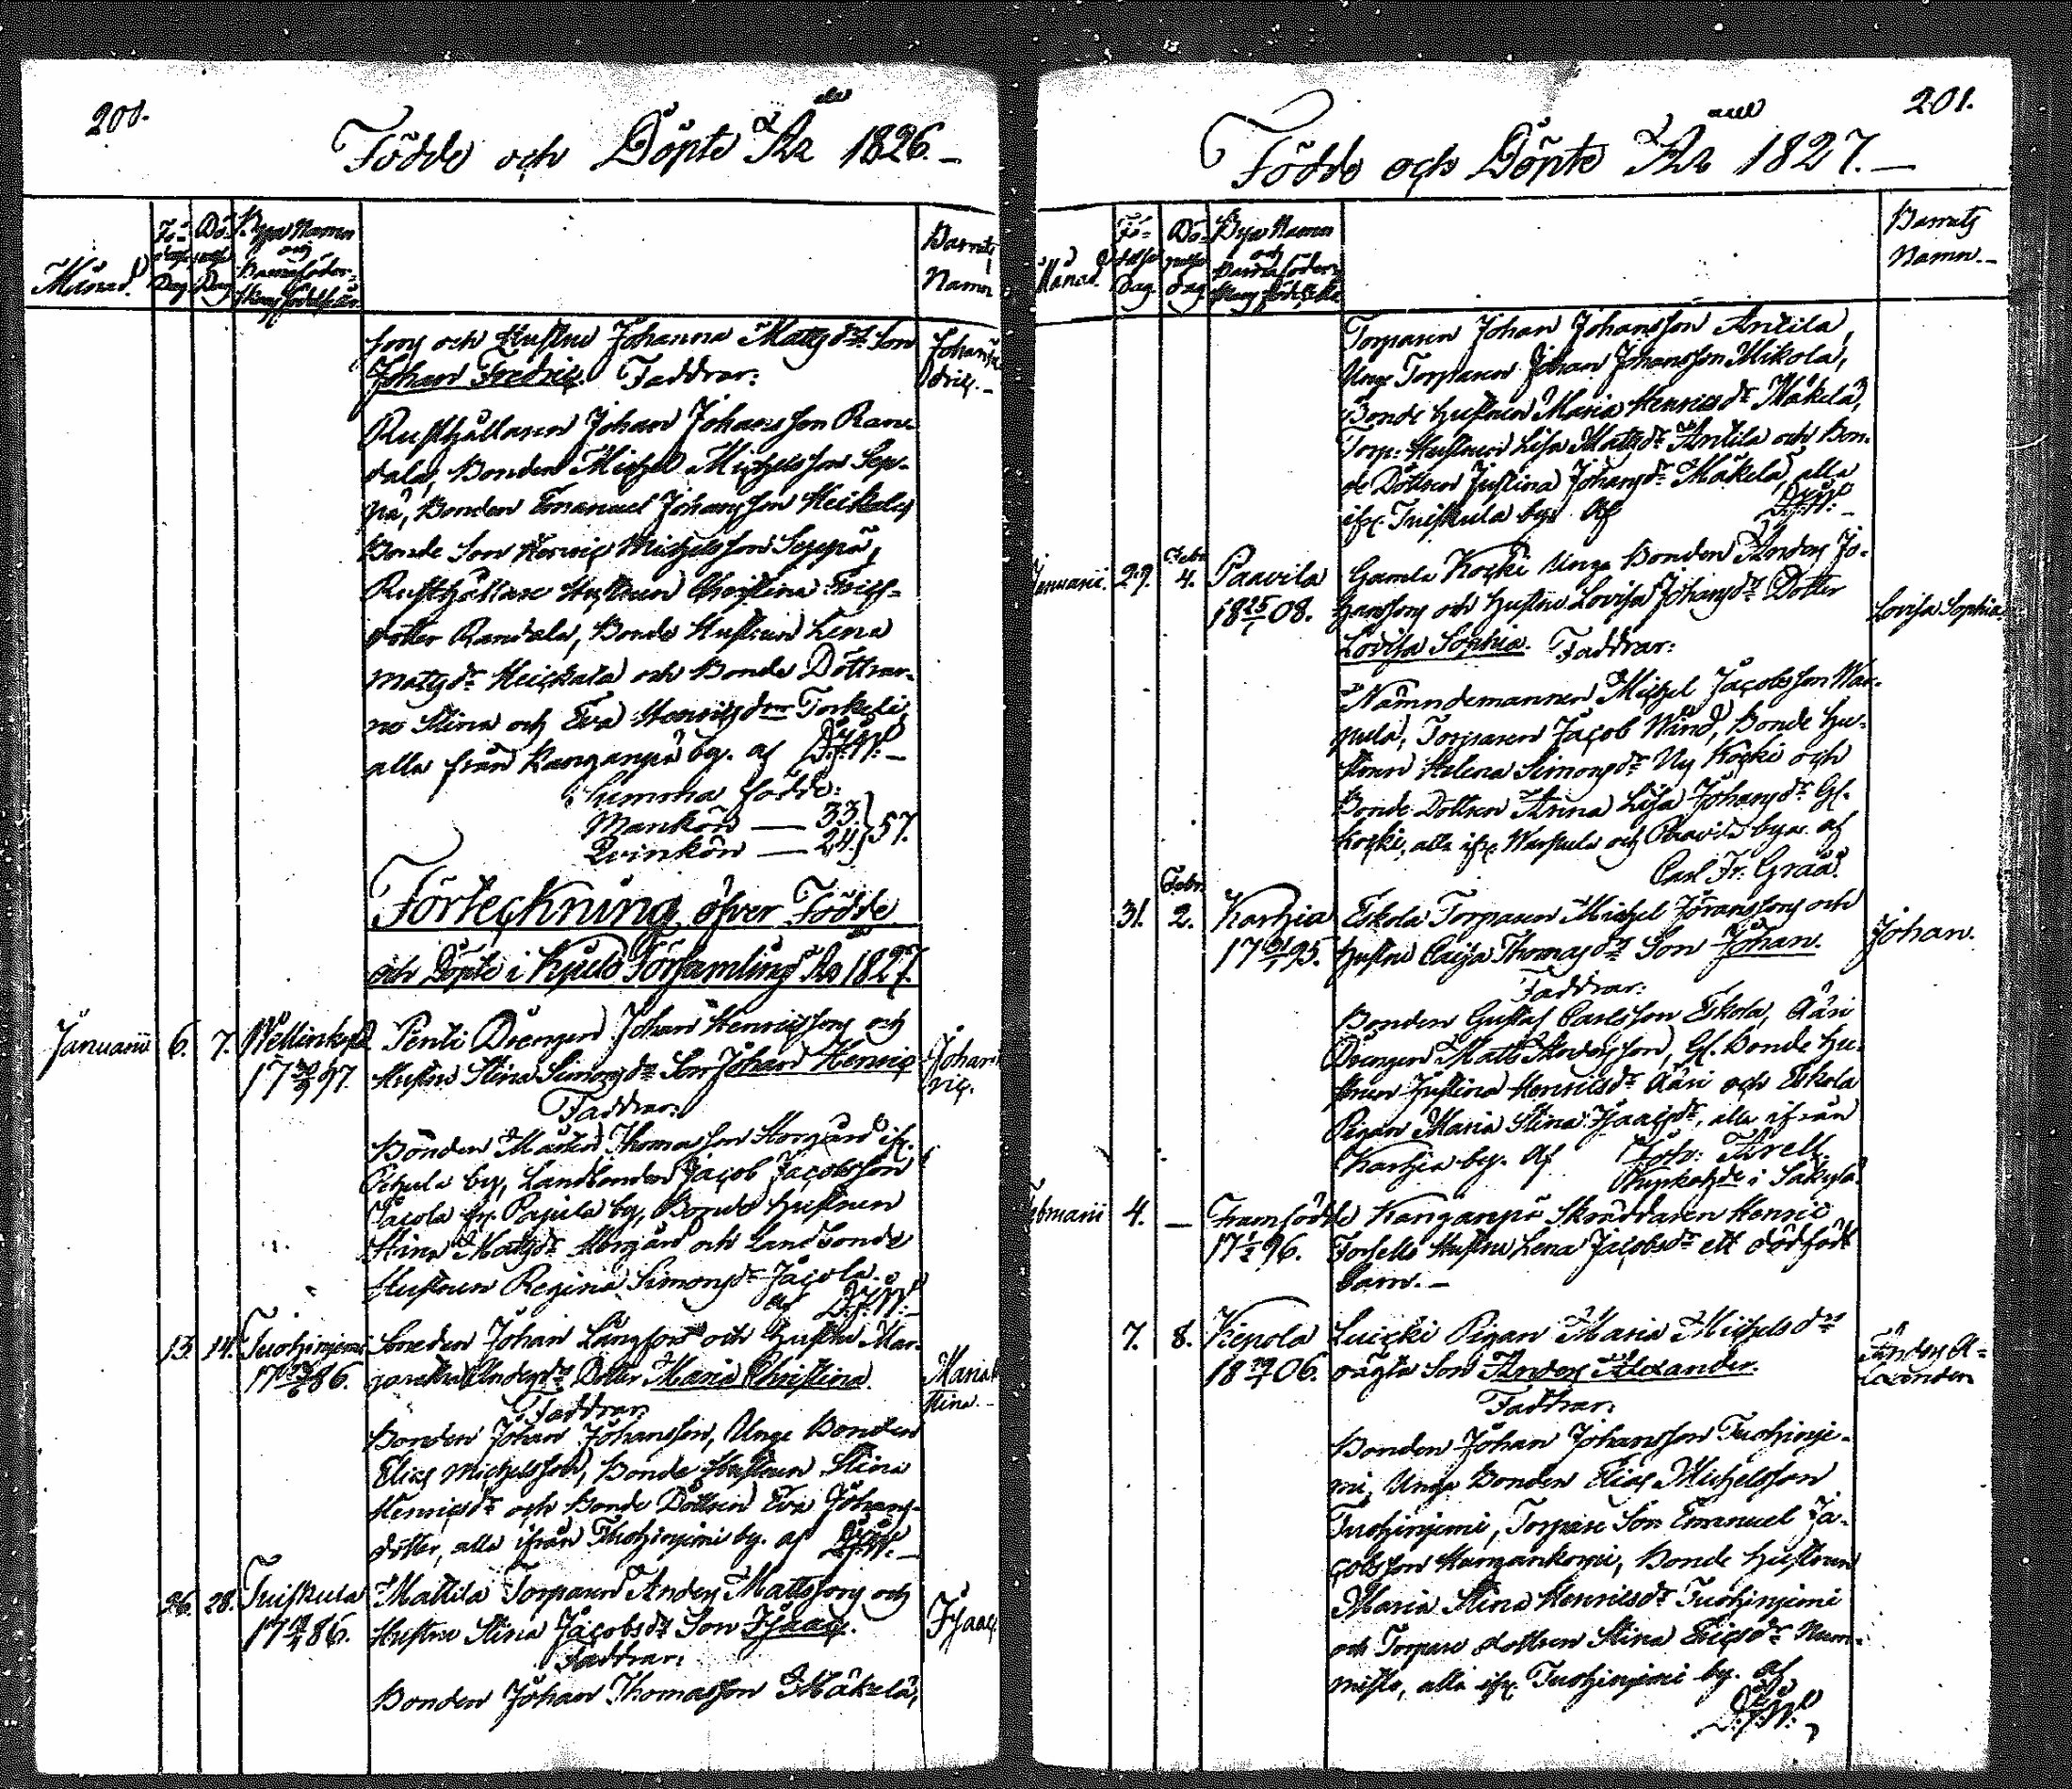 200.
Födde och Döpte År 1826.
Månad.
Fö-
Dag
Dö-
Dag
Byar Namn
och
Barnaföder-
Barnets
Namn
sons och Hustru Johanna Matsdrs Son
Johan Fredric. Faddrar:
Johan Fre
dric.
Rusthållaren Johan Johansson Ran-
dala, Bonden Michel Michelsson Sep-
pä, Bonden Emanuel Johansson Heikola,
Bonde Son Henric Michelsson Seppä,
Rusthållare Hustrun Christina
dotter Randala, Bonde Hustrun Lena
Matsdr Heickala och Bonde Döttrar-
ne Stina och Eva Henricsdrar Torkeli,
alla från Kanganpä by. af
Summa födde:
Mankön — 33.
Qvinkön — 24. } 57.
Förteckning öfver Födde
och Döpte i Kjulo Församling År 1827.
Januarii 6. 7.
1797.
Penti Drengen Johan Henricssons och
Hustru Stina Simonsdrs Son Johan Henric
Johan
ric.
Faddrar:
Bonden Mårten Thomasson Storgård ifr.
by, Landbonden Jacob Jacobsson
Jacola fr. Pajula by, Bonde Hustrun
Stina Matsdr Storgård och Landbonde
Hustrun Regina Simonsdr Jacola.
af
13. 14. Tuohiniemi
1786.
Smeden Johan Långfors och Hustru Mar-
garetha Andersdrs Dotter Maria Christina.
Maria
stina.
Faddrar:
Bonden Johan Johansson, Unge Bonden
Elias Michelsson, Bonde Hustrun Stina
Henricsdr och Bonde Dottren Eva Johans-
dotter, alla ifrån Tuohiniemi by. af
26. 28. Tuiskula
1786.
Mattila Torparen Anders Mattssons och
Hustru Stina Jacobsdrs Son Isaac.
Isaac.
Faddrar:
Bonden Johan Thomasson Mäkelä,
201.
Födde och Döpte År 1827.
Månad.
Fö-
delse
Dag.
Dö-
pelse
Dag.
Byar Namn
och
Barnaföder-
Barnets
Namn.
Torparen Johan Johansson Antila,
Unge Torparen Johan Johansson Mikola,
Bonde Hustrun Maria Henricsdr Mäkelä,
Torp: Hustrun Lisa Matsdr Antila och Bon-
de Dottren Justina Johansdr Mäkelä, alla
ifr. Tuiskula by. Af
Januarii. 29. Febr. 4. Paavila
1808.
Gamla Kocki Unge Bonden Anders Jo-
hanssons och Hustru Lovisa Johansdrs Dotter
Lovisa Sophia. Faddrar:
Lovisa Sophia.
Nämndemannen Michel Jacobsson War-
pula, Torparen Jacob Wind, Bonde Hu-
strun Helena Simonsdr Ny Kocki och
Bonde Dottren Anna Lisa Johansdr Gl.
Kocki, alla ifr. Warpula och Paavila byar. af
Carl Fr. Graâ.
31. Febr. 2. Karhia
1795.
Eskola Torparen Michel Göranssons och
Hustru Caisa Thomasdrs Son Johan.
Johan.
Faddrar:
Bonden Gustaf Carlsson Eskola, Ääri
Drengen Matts Andersson, Gl. Bonde Hu-
strun Justina Henricsdr Ääri och Eskola
Pigan Maria Stina Isaacsdr, alla ifrån
Karhia by. Af Joh: Arell.
i Säkylä.
Februarii 4. — Framfödde Kanganpä Skräddaren Henric
1796. Forsells Hustru Lena Jacobsdr ett dödfödt
barn.
7. 8. Kepola
1806.
Luicki Pigan Maria Michelsdrs
oägta Son Anders Alexander.
Anders A-
lexander
Faddrar:
Bonden Johan Johansson Tuohinie-
mi, Unge Bonden Elias Michelsson
Tuohiniemi, Torpare Son Emanuel Ja-
cobsson Harjankorpi, Bonde Hustrun
Maria Stina Henricsdr Tuohiniemi
och Torpare dottren Stina Ericsdr Num-
misto, alla ifr. Tuohiniemi by. af